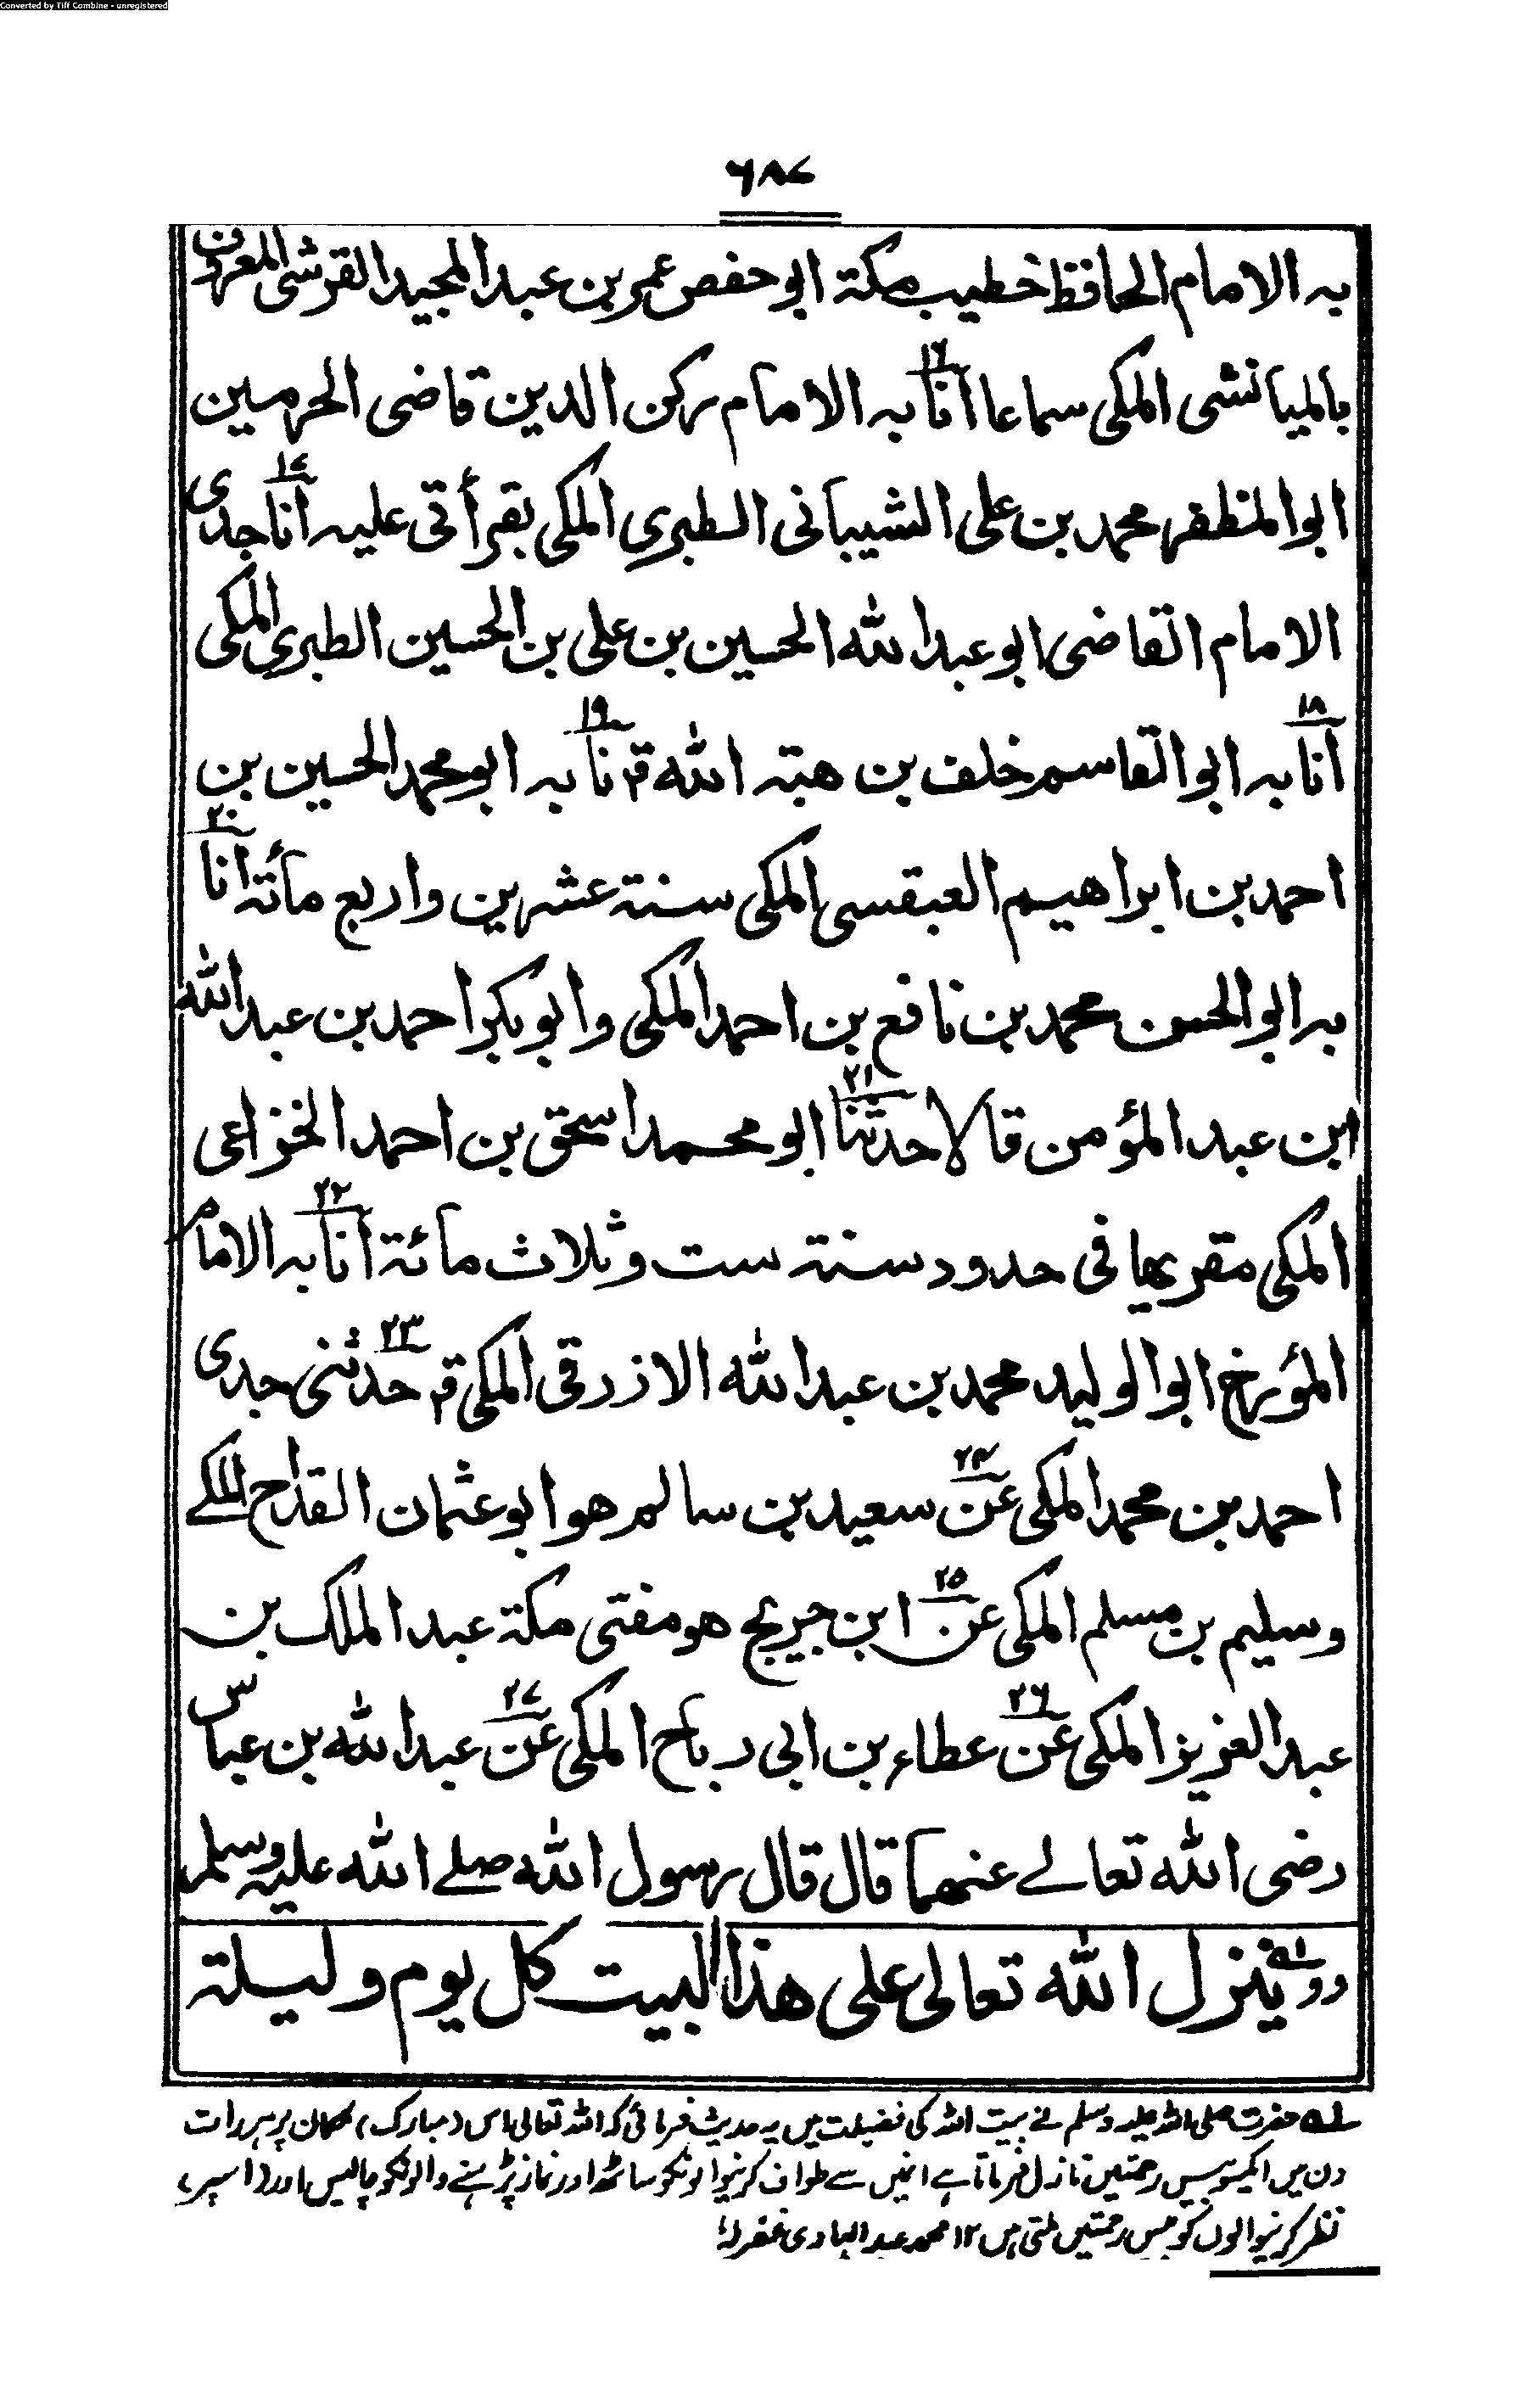 Converted by Tiff Combine - unregistered
٦٨٧
به الامام الحافظ خطيب مكة ابو حفص عمر بن عبد المجيد القرشى المعروف
بالميانشى المكى سماعا انا ١٦ به الامام ركن الدين قاضى الحرمين
ابو المظفر محمد بن على الشيبانى الطبرى المكى بقرأتى عليه انا ١٧ جدى
الامام القاضى ابو عبد الله الحسين بن على بن الحسين الطبرى المكى
انا ١٨ به ابو القاسم خلف بن هبته الله قم نا ١٩ به ابو محمد الحسين بن
احمد بن ابراهيم العبقسى المكى سنة عشرين واربع مأته انا ٢٠
به ابو الحسن محمد بن نافع بن احمد المكى وابو بكر احمد بن عبد الله
ابن عبد المؤمن قالا حدثنا ٢١ ابو محمد اسحق بن احمد الخزاعى
المكى مقريها فى حدود سنة ست وثلاث مائة انا ٢٢ به الامام
المؤرخ ابو الوليد محمد بن عبد الله الازرقى المكى قم حدثنى ٢٣ جدى
احمد بن محمد المكى عن ٢٤ سعيد بن سالم هو ابو عثمان القداح المكے
وسليم بن مسلم المكى عن ٢٥ ابن جريج هو مفتى مكة عبد الملك بن
عبد العزيز المكى عن ٢٦ عطاء بن ابى رباح المكى عن ٢٧ عبد الله بن عباس
رضى الله تعالے عنهما قال قال رسول الله صلے الله عليه وسلم
رو ۱ه ينزل الله تعالى على هذا البيت كل يوم وليلة
١ه حضرت صلی اللہ علیہ وسلم نے بیت اللہ کی فضیلت میں یہ حدیث فرمائی کہ اللہ تعالی اس (مبارک) مکان پر ہر رات
دن میں ایکسو بیس رحمتیں نازل فرماتا ہے انمیں سے طواف کرنیوالونکو ساٹھ اور نماز پڑہنے والونکو چالیس اور (اسپر)
نظر کرنیوالوں کو بیس رحمتیں ملتی ہیں ۱۲ محمد عبد الہادی غفرلہ